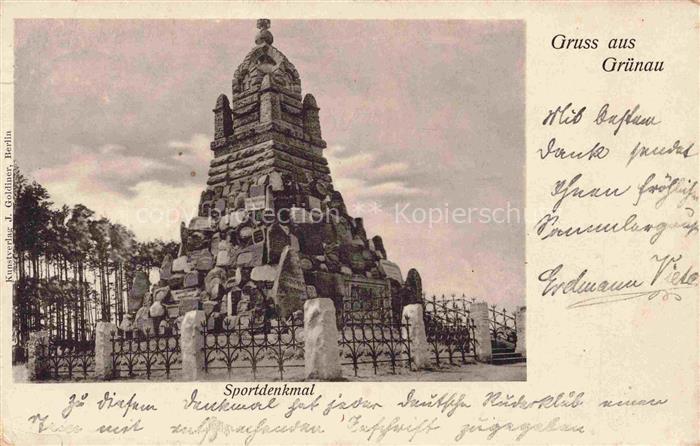 Gruss aus
Grünau
Mit bestem
Dank sendet
Ihnen fröhliche
Sammlergrüße
Erdmann
Kunstverlag J. Goldiner, Berlin
copyright ** Kopierschutz
Sportdenkmal
Zu diesem Denkmal hat jeder deutsche Ruderklub einen
Stein mit entsprechender Inschrift zugegeben